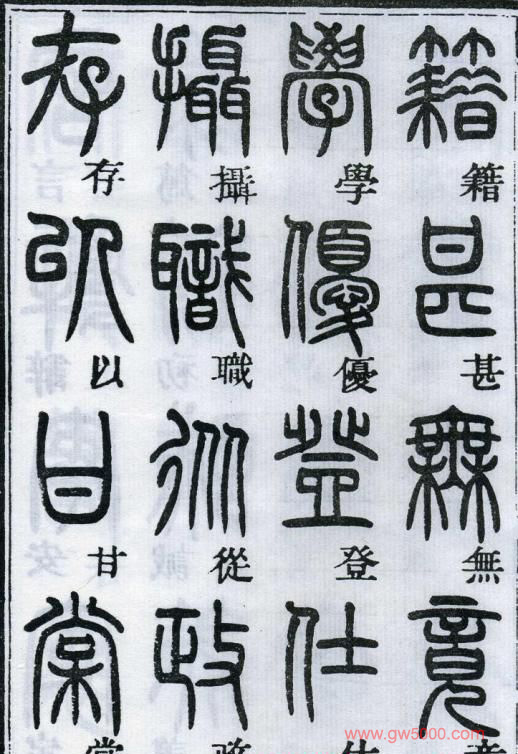 籍甚無竟
學優登仕
攝職從政
存以甘棠
www.gw5000.com